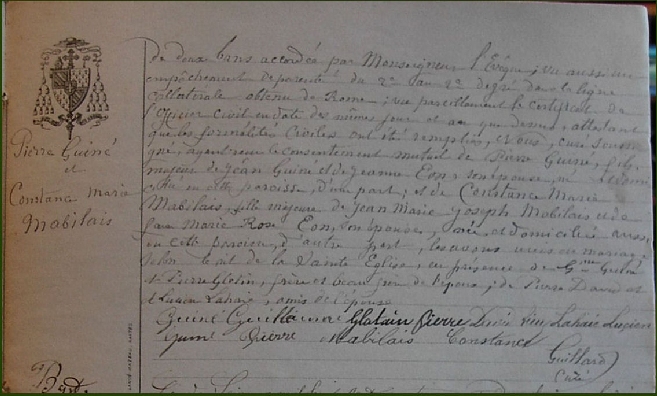 de deux bans accordée par Monseigneur l'Evêque ; vu aussi un
empêchement de parenté du 2e au 2e degré dans la ligne
collatérale obtenu de Rome ; vu pareillement le certificat de
l'Officier civil en date des mêmes jour et an que dessus, attestant
que les formalités civiles ont été remplies, Nous, curé soussi
gné, ayant reçu le consentement mutuel de Pierre Guiné, fils
majeur de Jean Guiné et de Jeanne Eon, son épouse,
en cette paroisse, d'une part ; et de Constance Marie
Mabilais, fille majeure de Jean Marie Joseph Mabilais et de
Marie Rose Eon, son épouse, née et domiciliée aussi
en cette paroisse, d'autre part, les avons unis en mariage
selon le rit de la Sainte Eglise, en présence de Gme Guiné
et Pierre Glotin, frère et beau frère de l'époux ; de Pierre David et
de Lucien Lahaie, amis de l'épouse
Pierre Guiné
et
Constance Marie
Mabilais
Guiné Guillaume Glotain Pierre Lahaie Lucien
Pierre Mabilais Constance
Guillard
Curé